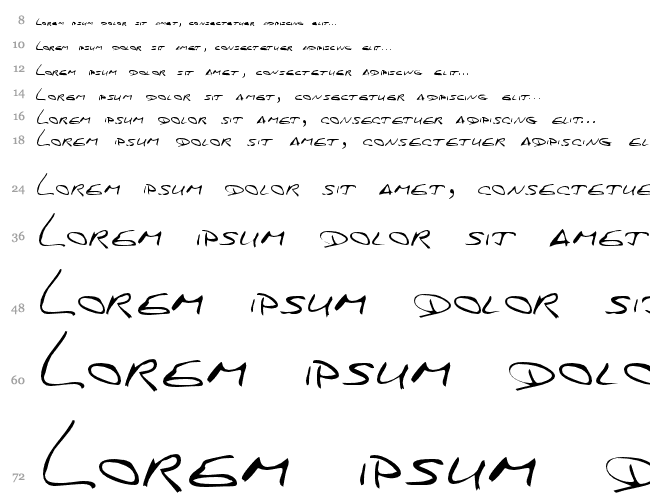 8 Lorem ipsum dolor sit amet, consectetuer adipiscing elit...
10 Lorem ipsum dolor sit amet, consectetuer adipiscing elit...
12 Lorem ipsum dolor sit amet, consectetuer adipiscing elit...
14 Lorem ipsum dolor sit amet, consectetuer adipiscing elit...
16 Lorem ipsum dolor sit amet, consectetuer adipiscing elit...
18 Lorem ipsum dolor sit amet, consectetuer adipiscing el
24 Lorem ipsum dolor sit amet, consectetue
36 Lorem ipsum dolor sit amet
48 Lorem ipsum dolor sit
60 Lorem ipsum dolo
72 Lorem ipsum d